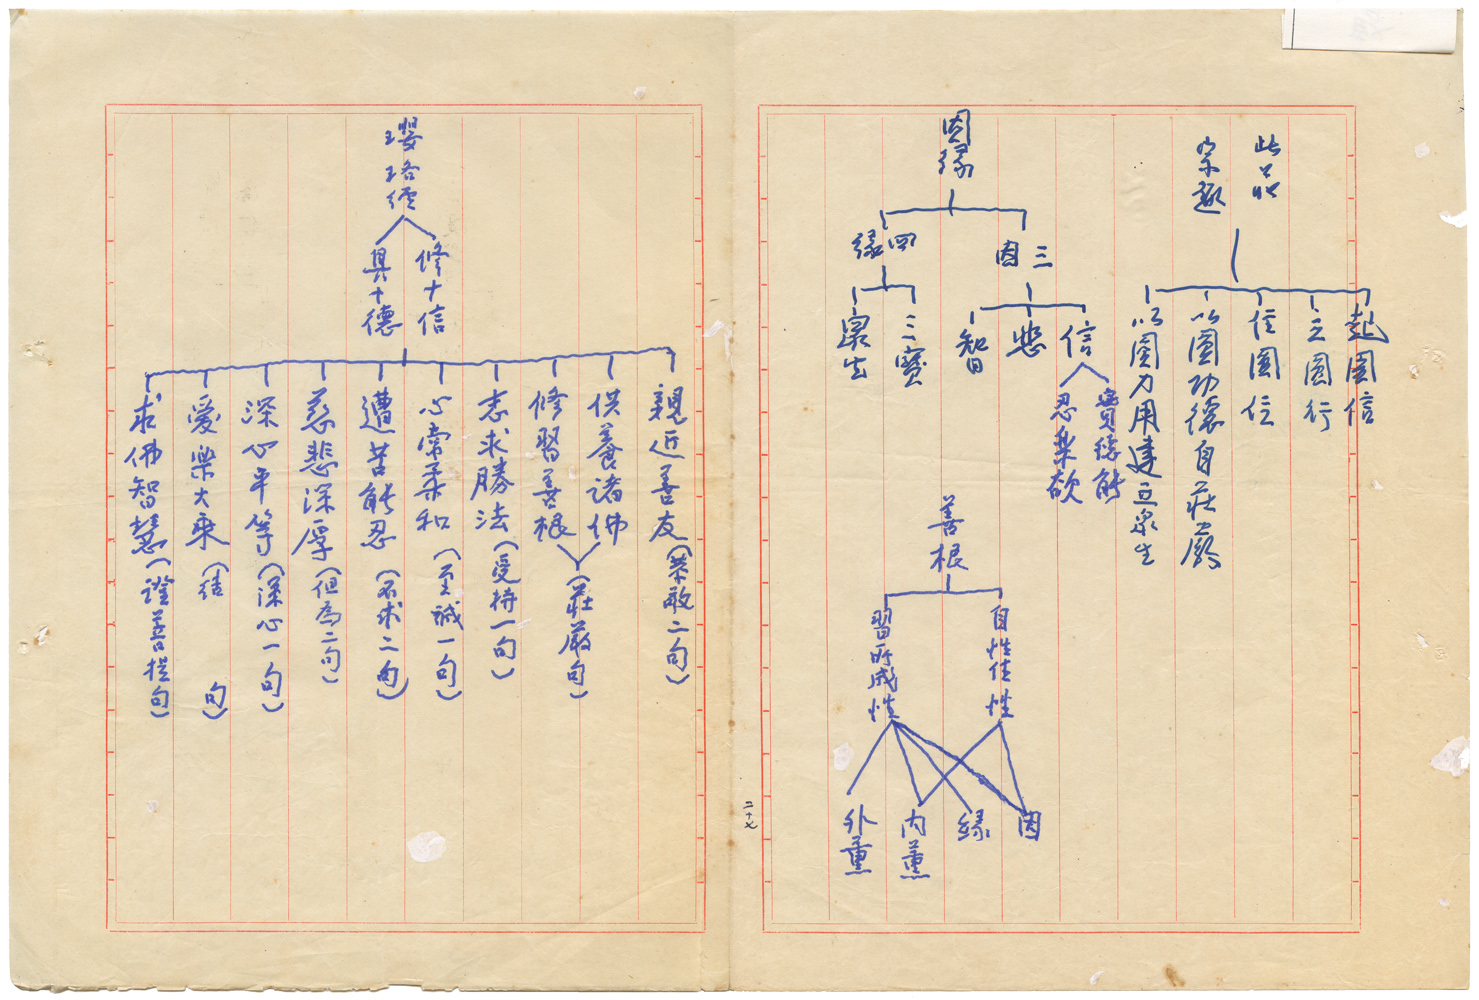 此品
宗趣
起圓信
立圓行
住圓位
以圓功德自莊嚴
以圓力用建立眾生
因緣
三因
四緣
信
悲
智
三寶
眾生
實德能
忍樂欲
善根
自性住性
習所成性
因
緣
內薰
外薰
二十七
瓔珞經
修十信
具十德
親近善友(恭敬二句)
供養諸佛
修習善根
(莊嚴句)
志求勝法(受持一句)
心常柔和(至誠一句)
遭苦能忍(不求二句)
慈悲深厚(但為二句)
深心平等(深心一句)
愛樂大乘( 句)
求佛智慧(證菩提句)